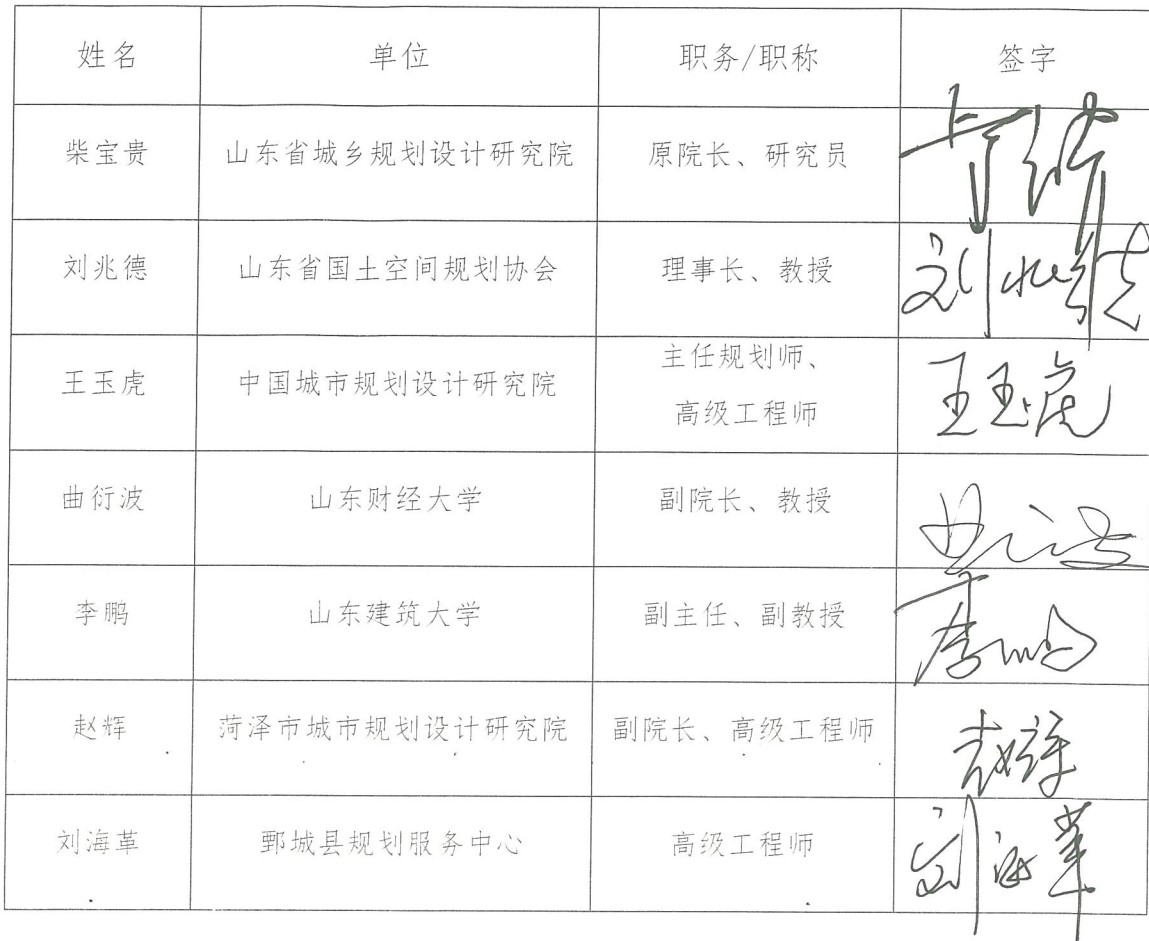 姓名 单位 职务/职称 签字
柴宝贵 山东省城乡规划设计研究院 原院长、研究员
刘兆德 山东省国土空间规划协会 理事长、教授 刘兆德
王玉虎 中国城市规划设计研究院 主任规划师、
高级工程师 王玉虎
曲衍波 山东财经大学 副院长、教授 曲衍波
李鹏 山东建筑大学 副主任、副教授 李鹏
赵辉 菏泽市城市规划设计研究院 副院长、高级工程师 赵辉
刘海革 鄄城县规划服务中心 高级工程师 刘海革